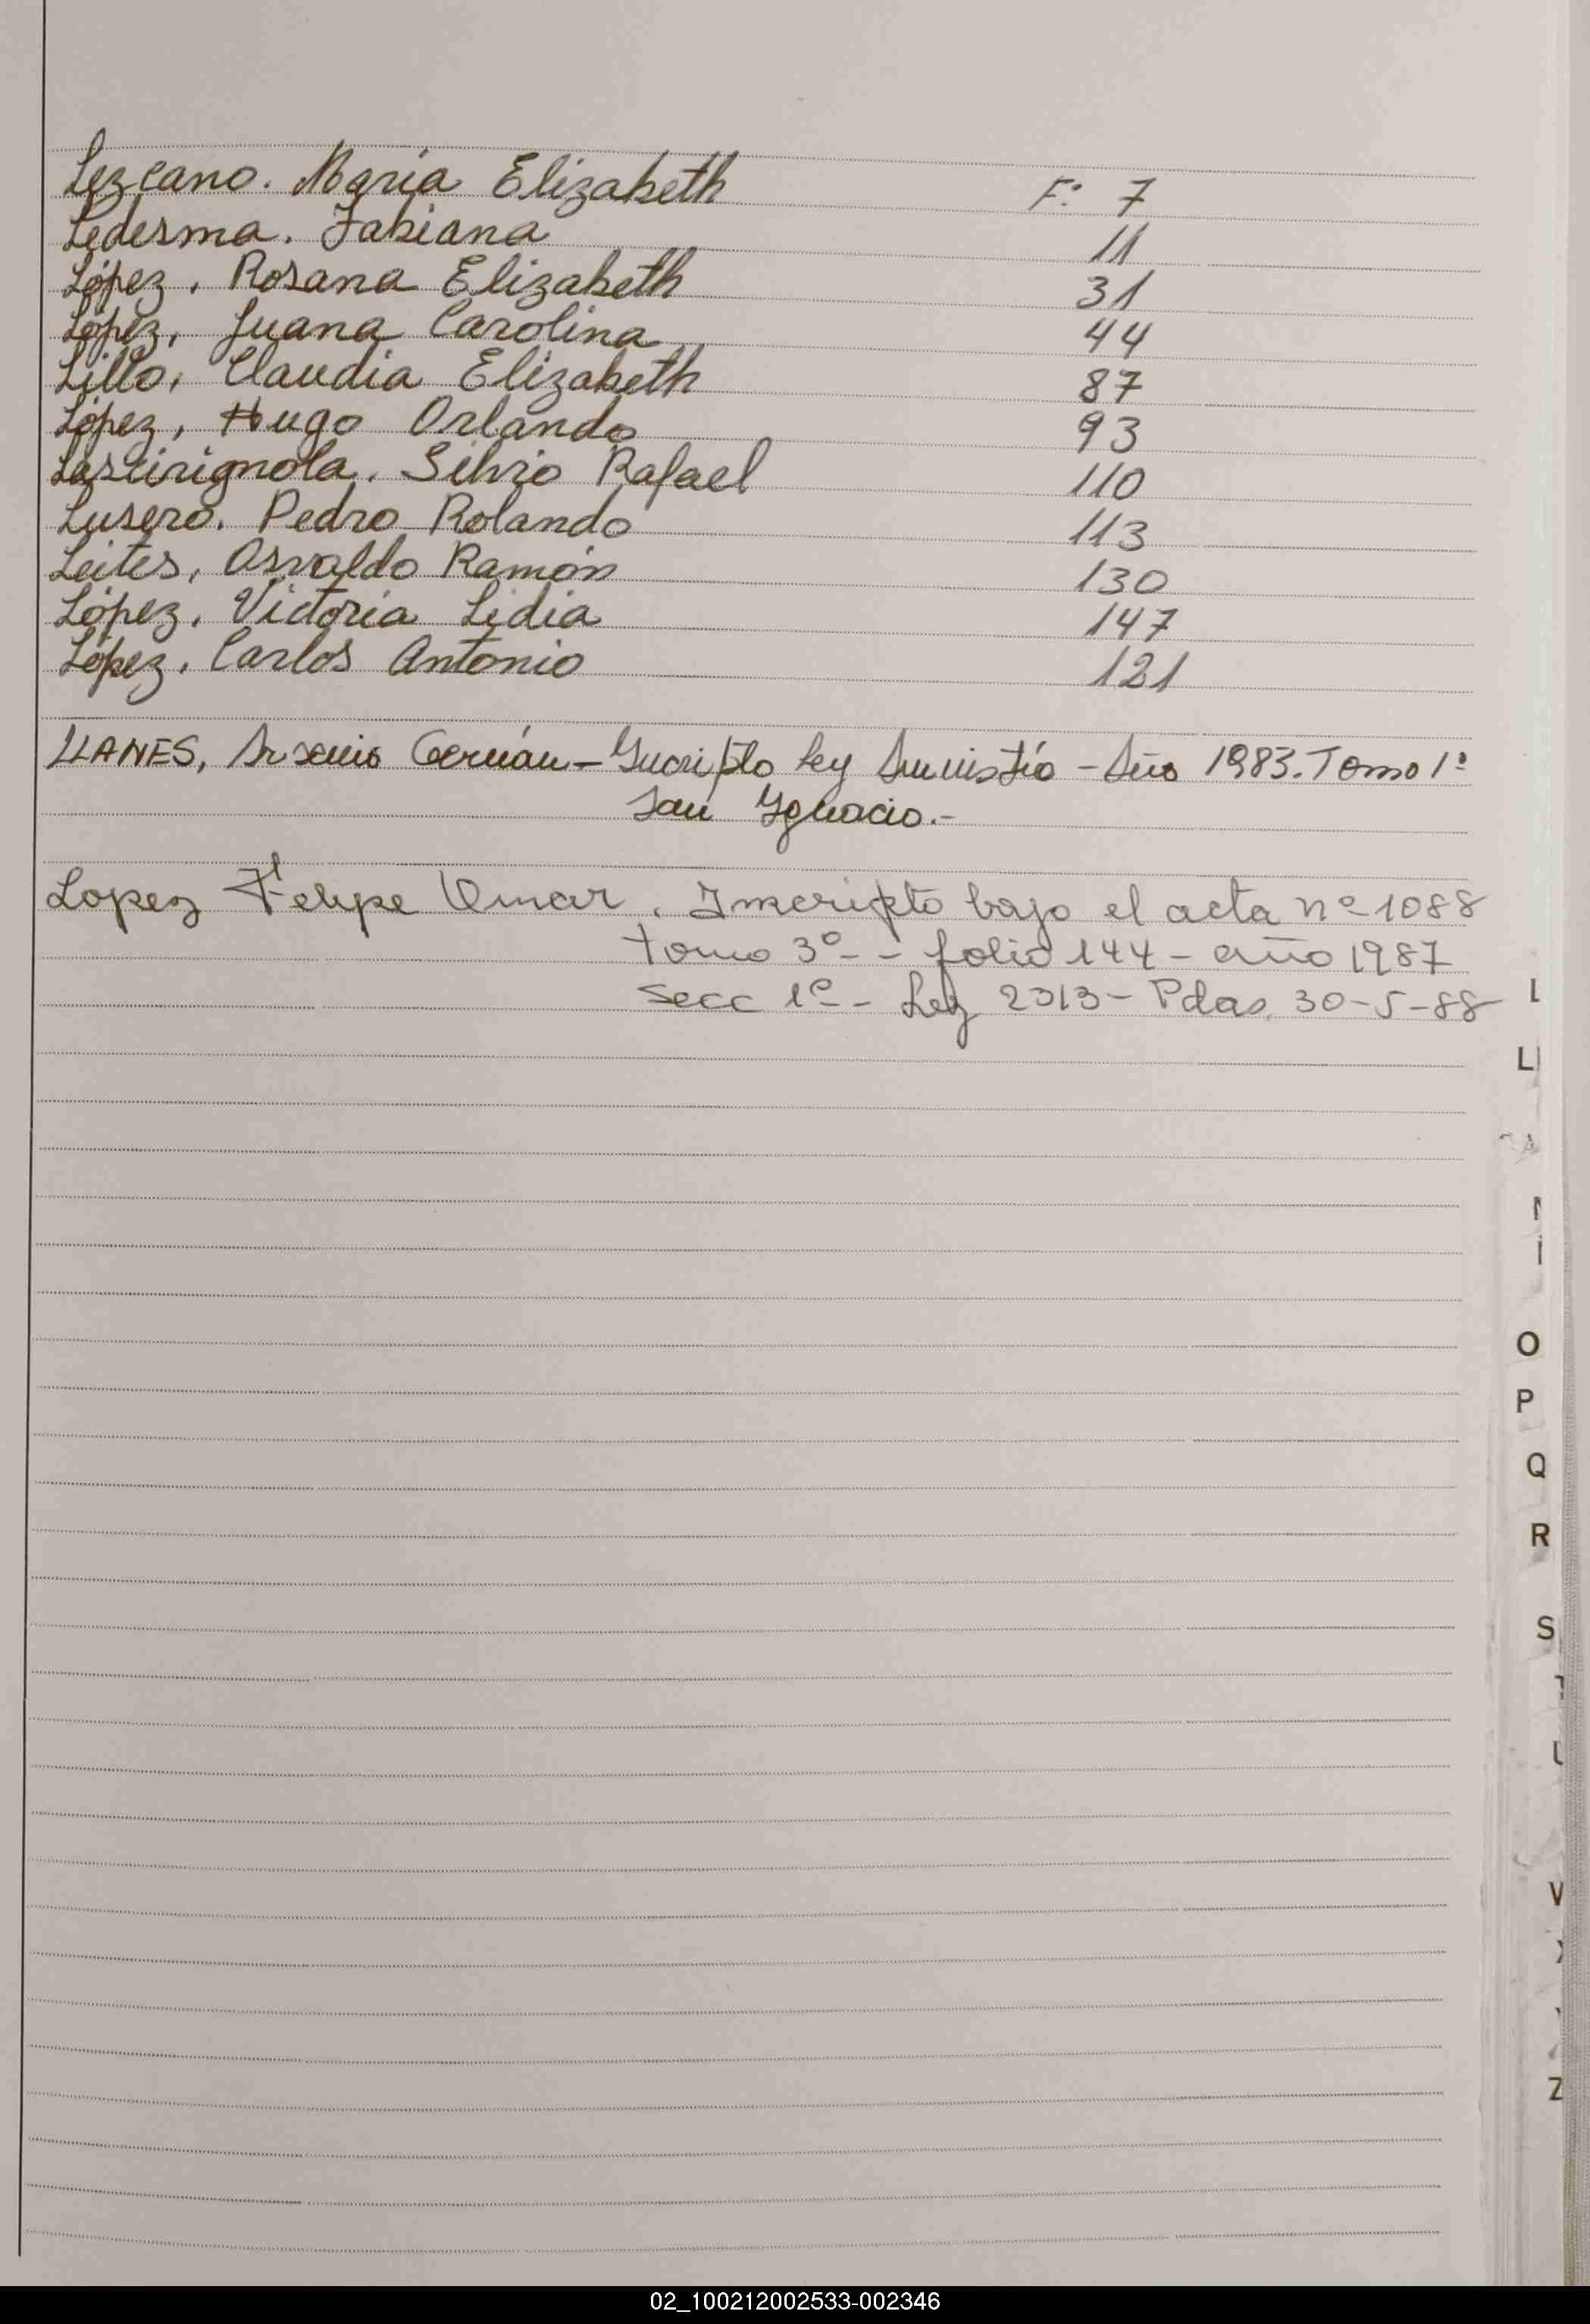 Lezcano. María Elizabeth F: 7
Ledesma. Fabiana 11
López. Rosana Elizabeth 31
López, Juana Carolina 44
Lillo, Claudia Elizabeth 87
López, Hugo Orlando 93
Lascirignola. Silvio Rafael 110
Lusero. Pedro Rolando 113
Leites, Osvaldo Ramón 130
López. Victoria Lidia 147
López. Carlos Antonio 121
LLANES, Arsenio Germán - Inscripto Ley Amnistía - Año 1983. Tomo 1º
San Ignacio.-
Lopez Felipe Omar. Inscripto bajo el acta nº 1088
tomo 3º - - folio 144 - año 1987
secc 1º - Ley 2313 - Pdas. 30-5-88
L
LL
N
O
P
Q
R
S
T
U
V
X
Z
02_100212002533-002346